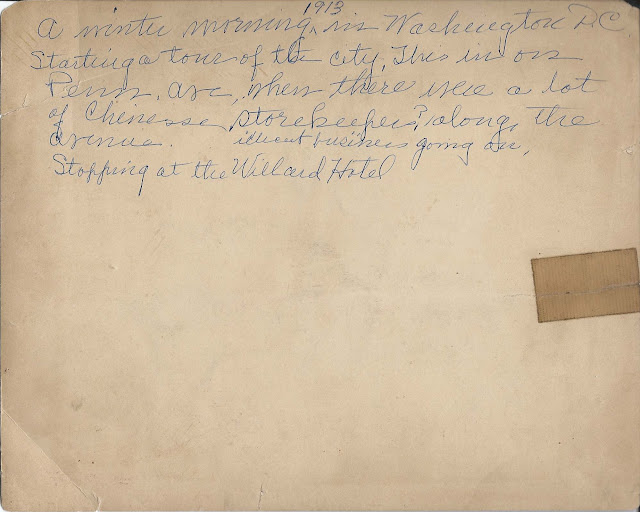 1913
A winter morning, in Washington D.C.
Starting a tour of the city. This in on
Penn. ave, when there were a lot
of Chinesse storekeepers? along, the
avenue. illicut business going on,
Stopping at the Willard Hotel